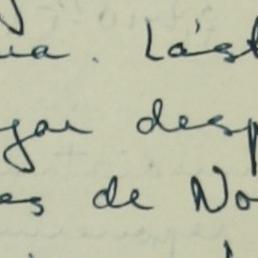 ua. Lást
gar desp
es de No